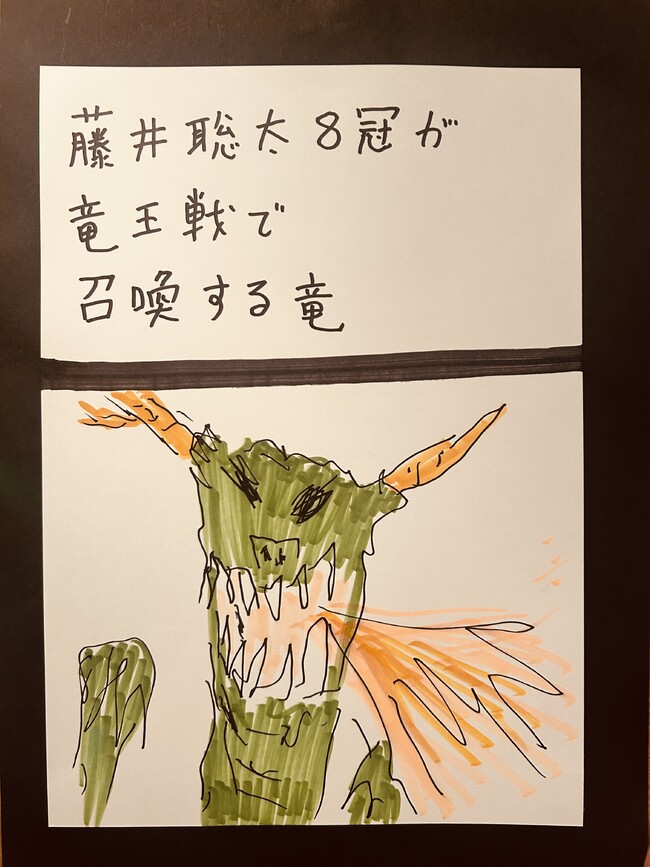 藤井聡太8冠が
竜王戦で
召喚する竜